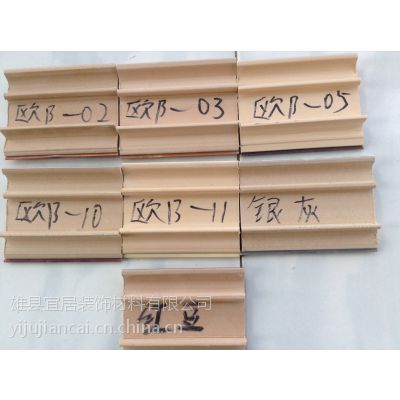 欧B-02
欧B-03
欧B-05
欧B-10
欧B-11
银灰
红豆
雄县宜居装饰材料有限公司
yijujiancai.cn.china.cn